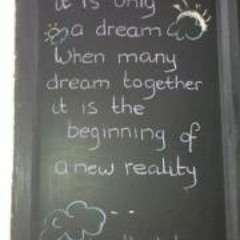 it is only
a dream
When many
dream together
it is the
beginning of
a new reality